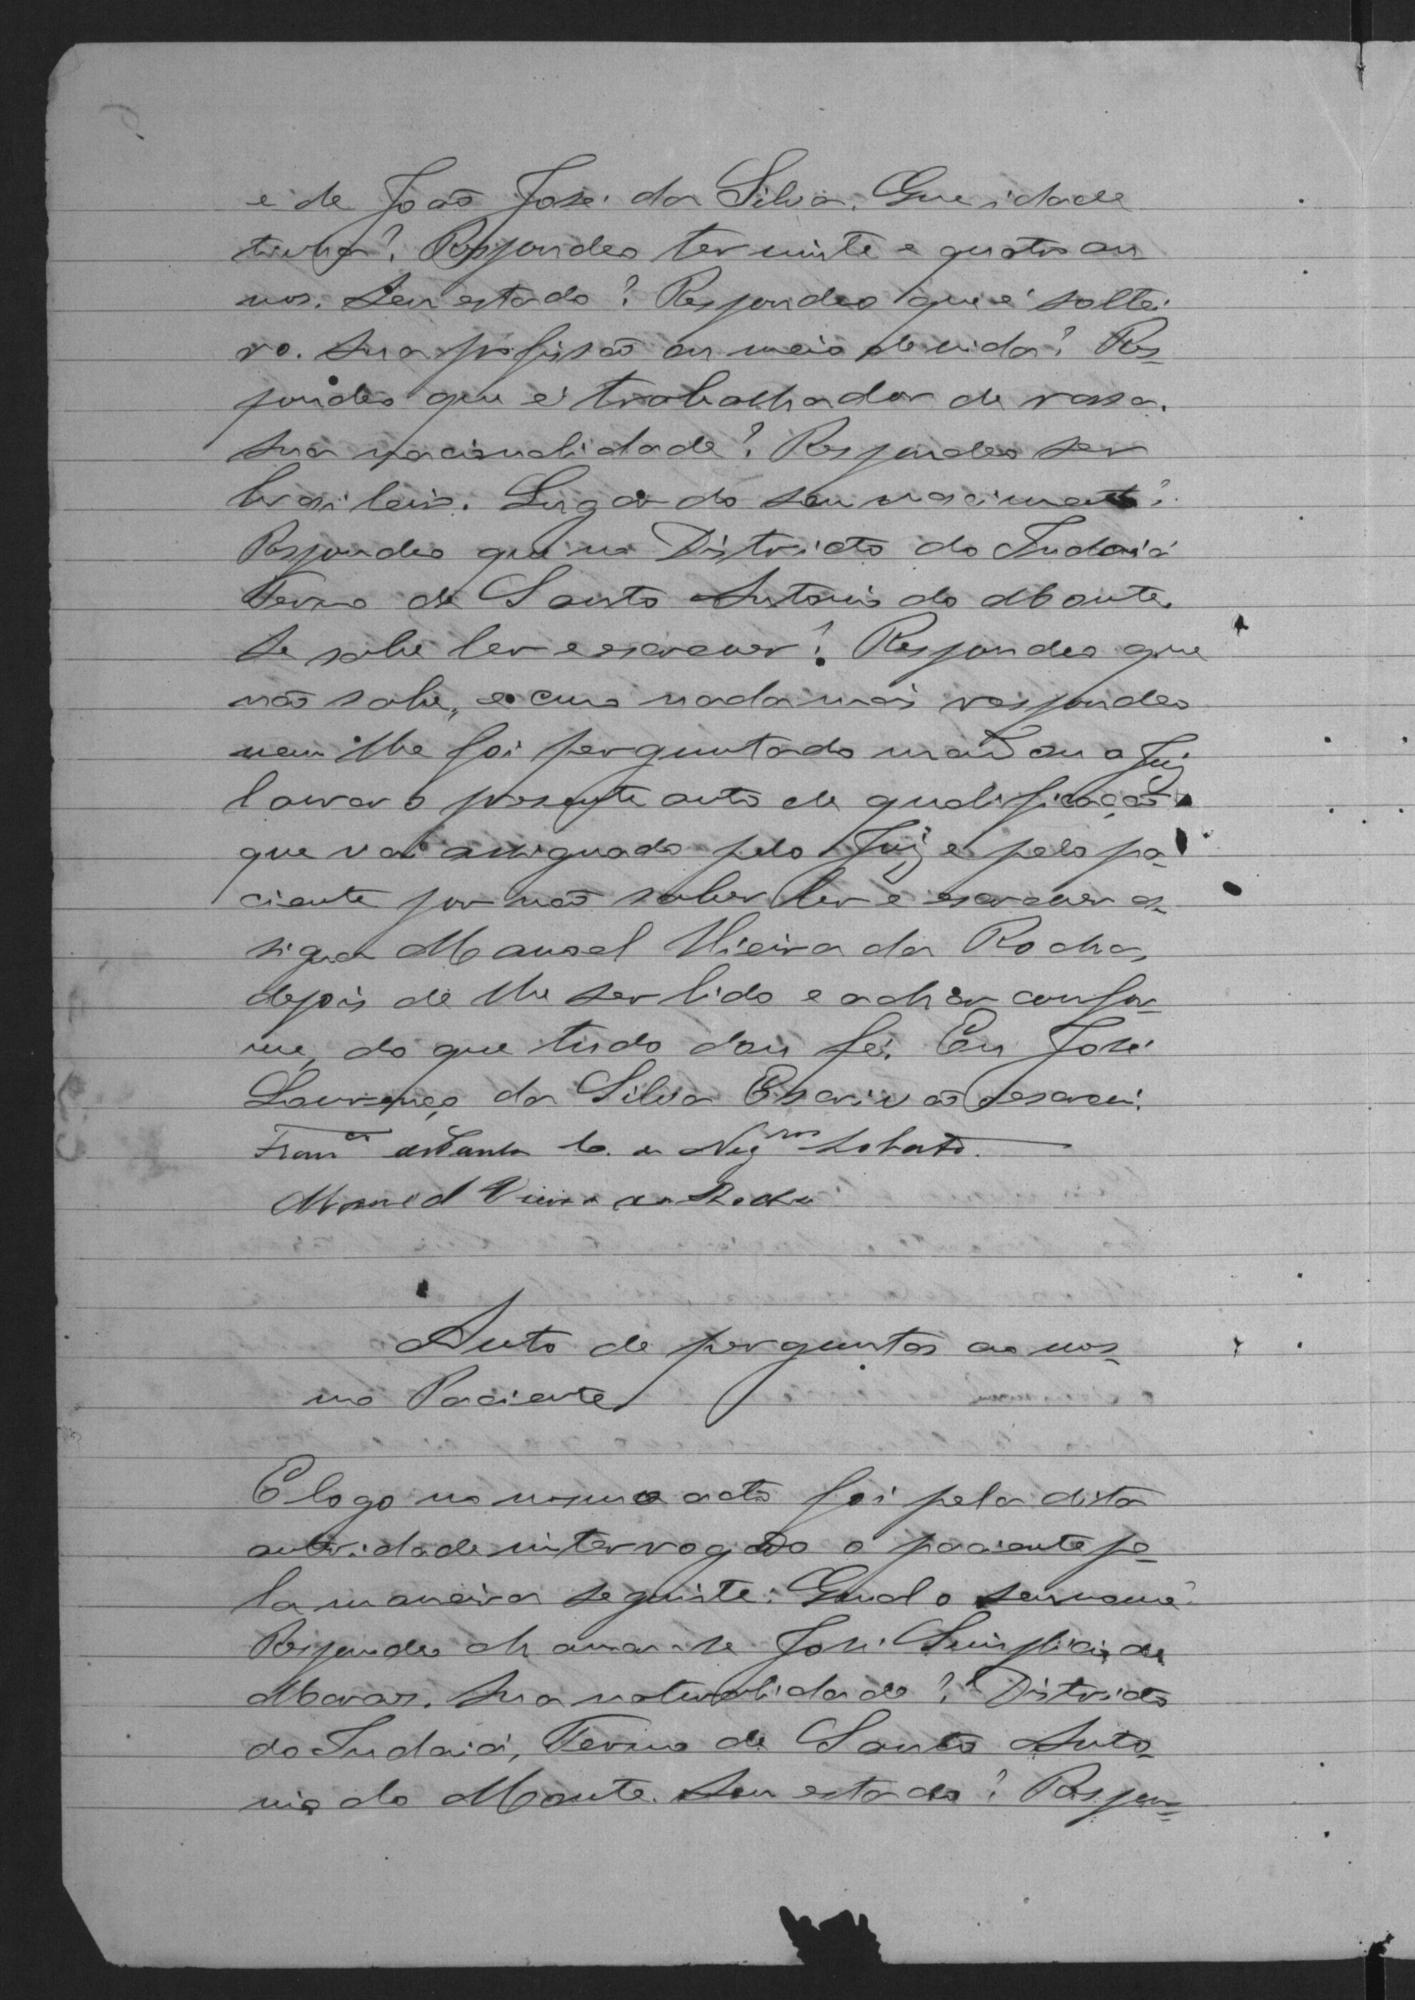 e de João José da Silva. Que idade
tinha? Respondeo ter vinte e quatro an
nos. Seu estado? Respondeo que é soltei
ro. Sua profissão ou meio de vida? Res-
pondeo que é trabalhador de rossa.
Sua nacionalidade? Respondeo ser
brasileiro. Lugar do seu nascimento?
Respondeo que no Districto do Indaiá
Termo de Santo Antonio do Monte.
Se sabe ler e escrever? Respondeo que
não sabe, e como nada mais respondeo
nem lhe foi perguntado mandou o Juiz
lavrar o presente auto de qualificação
que vai assignado pelo Juiz e pelo pa-
ciente por não saber ler e escrever as-
signa Manoel Vieira da Rocha,
depois de lhe ser lido e achar confor-
me, do que tudo dou fé. Eu José
Lourenço da Silva Escrivão escrevi.
Franco de Paula C. de Negros Lobato.
Manoel Vieira da Rocha
Auto de perguntas ao mes-
mo Paciente
E logo no mesmo acto foi pela dita
autoridade interrogado o paciente pe-
la maneira seguinte: Qual o seu nome?
Respondeo chamar-se José Simplicio de
Moraes. Sua naturalidade? Districto
do Indaiá, Termo de Santo Anto-
nio do Monte. Seu estado? Respon-